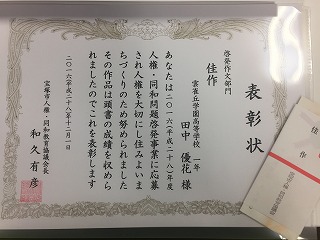 表彰状
啓発作文部門
雲雀丘学園高等学校 一年
佳作
田中 優花 様
あなたは二〇一六(平成二十八)年度
人権・同和問題啓発事業に応募
され人権を大切にし住みよいま
ちづくりのため努められました
その作品は頭書の成績を収めら
れましたのでこれを表彰します
二〇一六(平成二十八)年十二月一日
宝塚市人権・同和教育協議会長
和久有彦
佳作